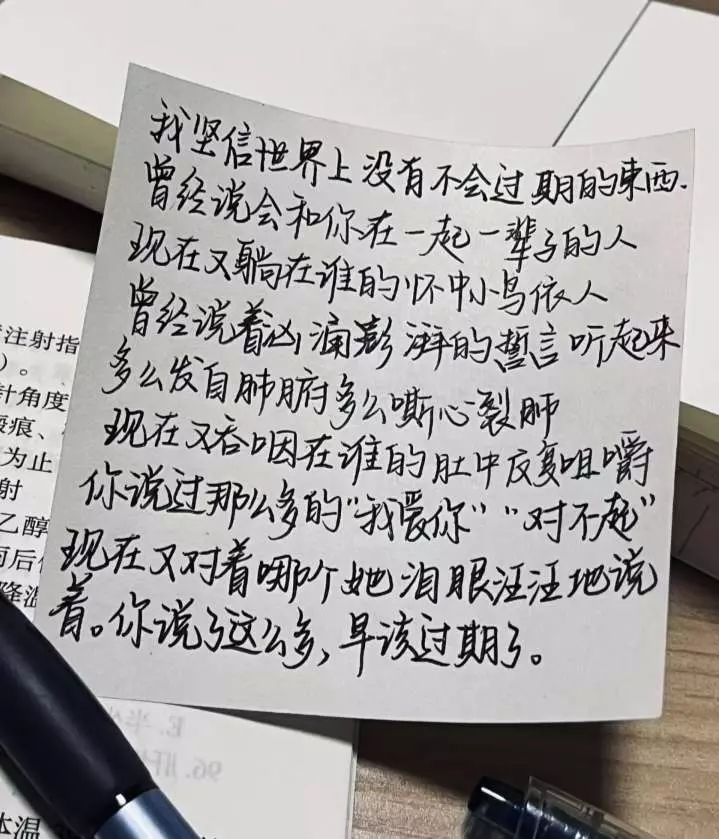 我坚信世界上没有不会过期的東西.
曾经说会和你在一起一辈子的人
现在又躺在谁的怀中小鸟依人
曾经说着汹涌澎湃的誓言听起来
多么发自肺腑多么嘶心裂肺
现在又吞咽在谁的肚中反复咀嚼
你说过那么多的“我爱你”“对不起”
现在又对着哪个她泪眼汪汪地说
着。你说了这么多,早该过期了。
注射指
)。
针角度
痕、
为止
射
乙醇
而后
降温
E. 半
96. 肝
体温